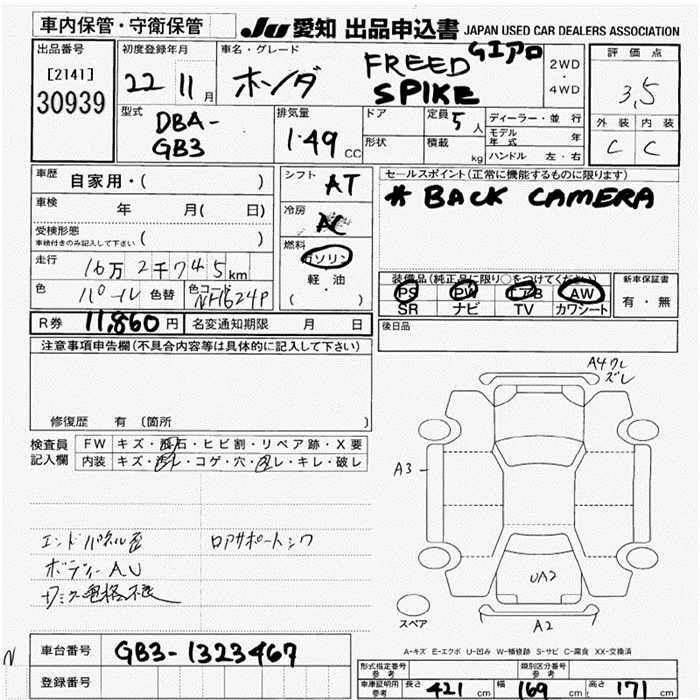 車内保管・守衛保管
JU 愛知 出品申込書 JAPAN USED CAR DEALERS ASSOCIATION
出品番号
[2141]
30939
初度登録年月
22 11月
車名・グレード
ホンダ FREED Gエアロ
SPIKE
2WD
・
4WD
評価点
3,5
外装 内装
C C
型式
DBA-
GB3
排気量
1.49 CC
ドア
形状
定員 5人
積載 kg
ディーラー・並行
モデル年式 年
ハンドル 左・右
車歴 自家用・( )
車検 年 月( 日)
受検形態
車検付きのみ記入して下さい ( )
走行 16万2千745km
色 パール 色替 色コード NH624P
シフト AT
冷房 AC
燃料 ガソリン
・
軽油
( )
セールスポイント(正常に機能するものに限ります)
# BACK CAMERA
装備品(純正品に限り○をつけてください)
PS PW エアB AW
SR ナビ TV カワシート
新車保証書
有・無
R券 11,860円 名変通知期限 月 日
後日品
注意事項申告欄(不具合内容等は具体的に記入して下さい)
修復歴 有 〔箇所 〕
検査員記入欄
FW キズ・飛石・ヒビ割・リペア跡・X要
内装 キズ・汚レ・コゲ・穴・スレ・キレ・破レ
エンドパネル歪 ロアサポートシワ
ボディーAU
A4ワレ
ズレ
A3
UA2
A2
スペア
A-キズ E-エクボ U-凹み W-補修跡 S-サビ C-腐食 XX-交換済
N
車台番号 GB3-1323467
登録番号
形式指定番号 参考 類別区分番号 参考
車庫証明用 参考 長さ 421cm 幅 169cm 高さ 171cm